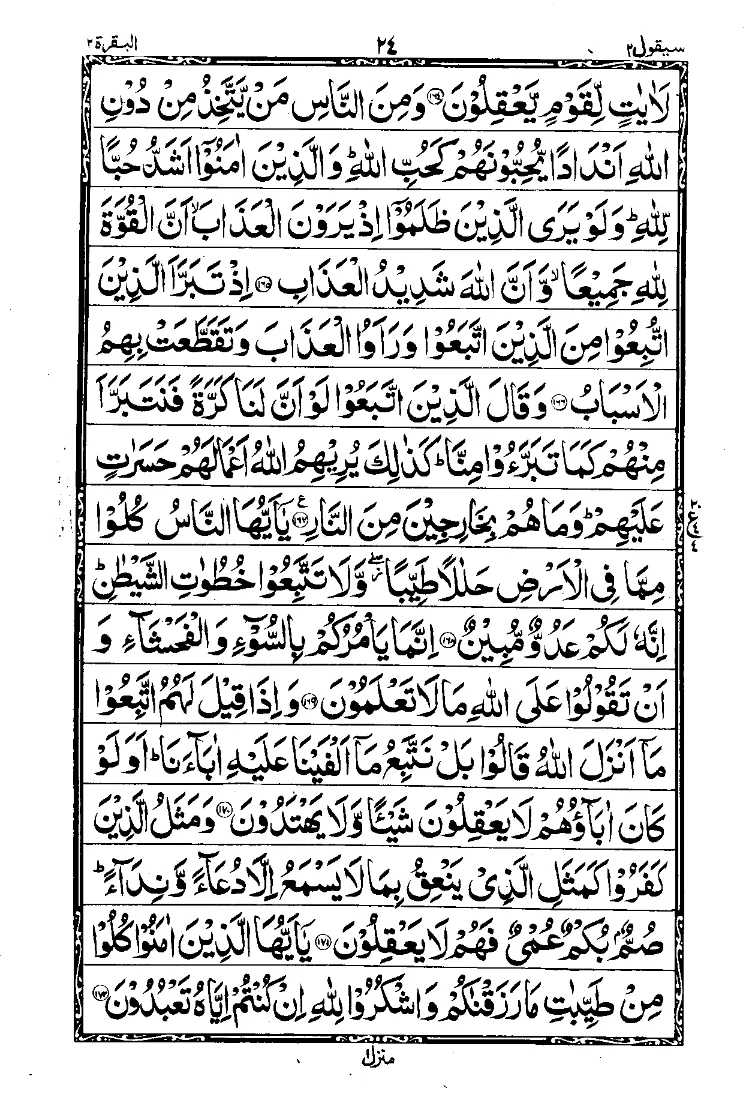 سيقول ٢ ٢٤ البقرة ٢
لَاٰيٰتٍ لِّقَوْمٍ يَّعْقِلُوْنَ ﴿١٦٤﴾ وَمِنَ النَّاسِ مَنْ يَّتَّخِذُ مِنْ دُوْنِ
اللّٰهِ اَنْدَادًا يُّحِبُّوْنَهُمْ كَحُبِّ اللّٰهِ ؕ وَالَّذِيْنَ اٰمَنُوْۤا اَشَدُّ حُبًّا
لِّلّٰهِ ؕ وَلَوْ يَرَى الَّذِيْنَ ظَلَمُوْۤا اِذْ يَرَوْنَ الْعَذَابَ ۙ اَنَّ الْقُوَّةَ
لِلّٰهِ جَمِيْعًا ۙ وَّاَنَّ اللّٰهَ شَدِيْدُ الْعَذَابِ ﴿١٦٥﴾ اِذْ تَبَرَّاَ الَّذِيْنَ
اتُّبِعُوْا مِنَ الَّذِيْنَ اتَّبَعُوْا وَرَاَوُا الْعَذَابَ وَتَقَطَّعَتْ بِهِمُ
الْاَسْبَابُ ﴿١٦٦﴾ وَقَالَ الَّذِيْنَ اتَّبَعُوْا لَوْ اَنَّ لَنَا كَرَّةً فَنَتَبَرَّاَ
مِنْهُمْ كَمَا تَبَرَّءُوْا مِنَّا ؕ كَذٰلِكَ يُرِيْهِمُ اللّٰهُ اَعْمَالَهُمْ حَسَرٰتٍ
عَلَيْهِمْ ؕ وَمَا هُمْ بِخٰرِجِيْنَ مِنَ النَّارِ ﴿١٦٧﴾ ع يٰۤاَيُّهَا النَّاسُ كُلُوْا
مِمَّا فِى الْاَرْضِ حَلٰلًا طَيِّبًا ۖ وَّلَا تَتَّبِعُوْا خُطُوٰتِ الشَّيْطٰنِ ؕ
اِنَّهٗ لَكُمْ عَدُوٌّ مُّبِيْنٌ ﴿١٦٨﴾ اِنَّمَا يَاْمُرُكُمْ بِالسُّوْٓءِ وَالْفَحْشَآءِ وَ
اَنْ تَقُوْلُوْا عَلَى اللّٰهِ مَا لَا تَعْلَمُوْنَ ﴿١٦٩﴾ وَاِذَا قِيْلَ لَهُمُ اتَّبِعُوْا
مَاۤ اَنْزَلَ اللّٰهُ قَالُوْا بَلْ نَتَّبِعُ مَاۤ اَلْفَيْنَا عَلَيْهِ اٰبَآءَنَا ؕ اَوَلَوْ
كَانَ اٰبَآؤُهُمْ لَا يَعْقِلُوْنَ شَيْـًٔا وَّلَا يَهْتَدُوْنَ ﴿١٧٠﴾ وَمَثَلُ الَّذِيْنَ
كَفَرُوْا كَمَثَلِ الَّذِىْ يَنْعِقُ بِمَا لَا يَسْمَعُ اِلَّا دُعَآءً وَّنِدَآءً ؕ
صُمٌّۢ بُكْمٌ عُمْىٌ فَهُمْ لَا يَعْقِلُوْنَ ﴿١٧١﴾ يٰۤاَيُّهَا الَّذِيْنَ اٰمَنُوْا كُلُوْا
مِنْ طَيِّبٰتِ مَا رَزَقْنٰكُمْ وَاشْكُرُوْا لِلّٰهِ اِنْ كُنْتُمْ اِيَّاهُ تَعْبُدُوْنَ ﴿١٧٢﴾
منزل ١